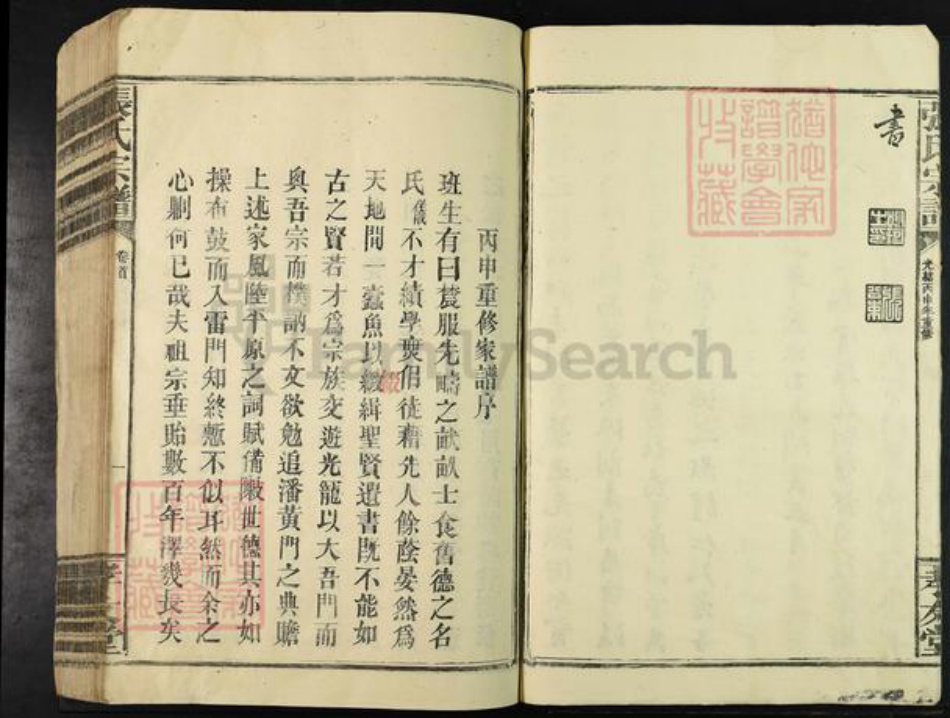 書
張氏宗譜
光緒丙申年重修
孝友堂
丙申重修家譜序
班生有曰農服先疇之畝畝士食舊德之名
氏儀不才績學輿侶徒藉先人餘蔭晏然為
天地間一蠹魚以綴緝聖賢遺書既不能如
古之賢若才為宗族交遊光寵以大吾門而
與吾宗而樸訥不文欲勉追潘黃門之典贍
上述家風陸平原之詞賦備敶世德其亦如
操布鼓而入雷門知終慙不似耳然而余之
心則何已哉夫祖宗垂貽數百年澤幾長矣
張氏宗譜
卷首
一
孝友堂
猶他家譜學會收藏
猶他家譜學會收藏
FamilySearch